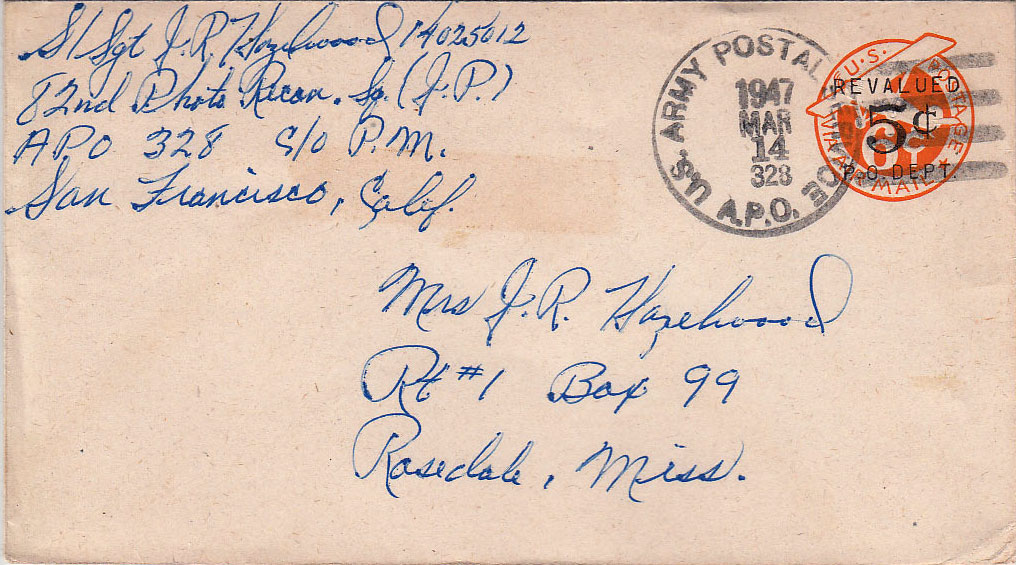 S/Sgt J.R. Hazelwood 14025012
82nd Photo Recon. Sq. (J.P.)
APO 328 C/O P.M.
San Francisco, Calif.
U.S. ARMY POSTAL SERVICE
1947
MAR
14
328
A.P.O.
U.S. POSTAGE
REVALUED
5¢
6¢
P.O. DEPT.
VIA AIR MAIL
Mrs J.R. Hazelwood
Rt #1 Box 99
Rosedale, Miss.